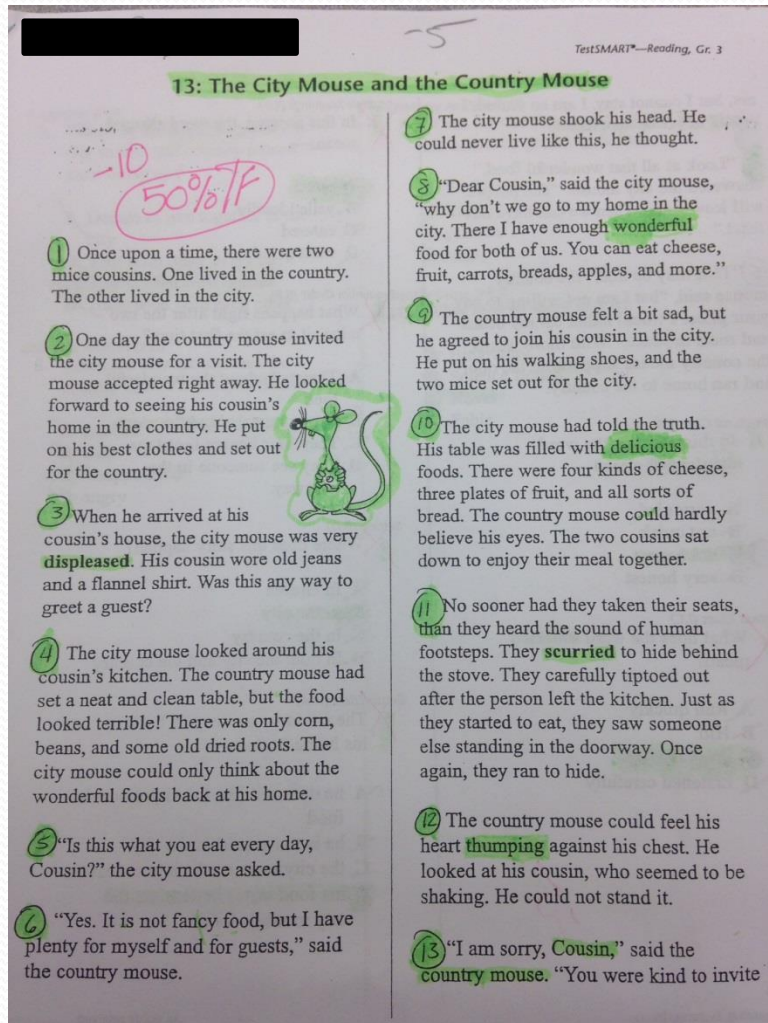 -5
TestSMART®—Reading, Gr. 3
13: The City Mouse and the Country Mouse
-10
50%
1 Once upon a time, there were two
mice cousins. One lived in the country.
The other lived in the city.
2 One day the country mouse invited
the city mouse for a visit. The city
mouse accepted right away. He looked
forward to seeing his cousin's
home in the country. He put
on his best clothes and set out
for the country.
3 When he arrived at his
cousin's house, the city mouse was very
displeased. His cousin wore old jeans
and a flannel shirt. Was this any way to
greet a guest?
4 The city mouse looked around his
cousin's kitchen. The country mouse had
set a neat and clean table, but the food
looked terrible! There was only corn,
beans, and some old dried roots. The
city mouse could only think about the
wonderful foods back at his home.
5 "Is this what you eat every day,
Cousin?" the city mouse asked.
6 "Yes. It is not fancy food, but I have
plenty for myself and for guests," said
the country mouse.
7 The city mouse shook his head. He
could never live like this, he thought.
8 "Dear Cousin," said the city mouse,
"why don't we go to my home in the
city. There I have enough wonderful
food for both of us. You can eat cheese,
fruit, carrots, breads, apples, and more."
9 The country mouse felt a bit sad, but
he agreed to join his cousin in the city.
He put on his walking shoes, and the
two mice set out for the city.
10 The city mouse had told the truth.
His table was filled with delicious
foods. There were four kinds of cheese,
three plates of fruit, and all sorts of
bread. The country mouse could hardly
believe his eyes. The two cousins sat
down to enjoy their meal together.
11 No sooner had they taken their seats,
than they heard the sound of human
footsteps. They scurried to hide behind
the stove. They carefully tiptoed out
after the person left the kitchen. Just as
they started to eat, they saw someone
else standing in the doorway. Once
again, they ran to hide.
12 The country mouse could feel his
heart thumping against his chest. He
looked at his cousin, who seemed to be
shaking. He could not stand it.
13 "I am sorry, Cousin," said the
country mouse. "You were kind to invite